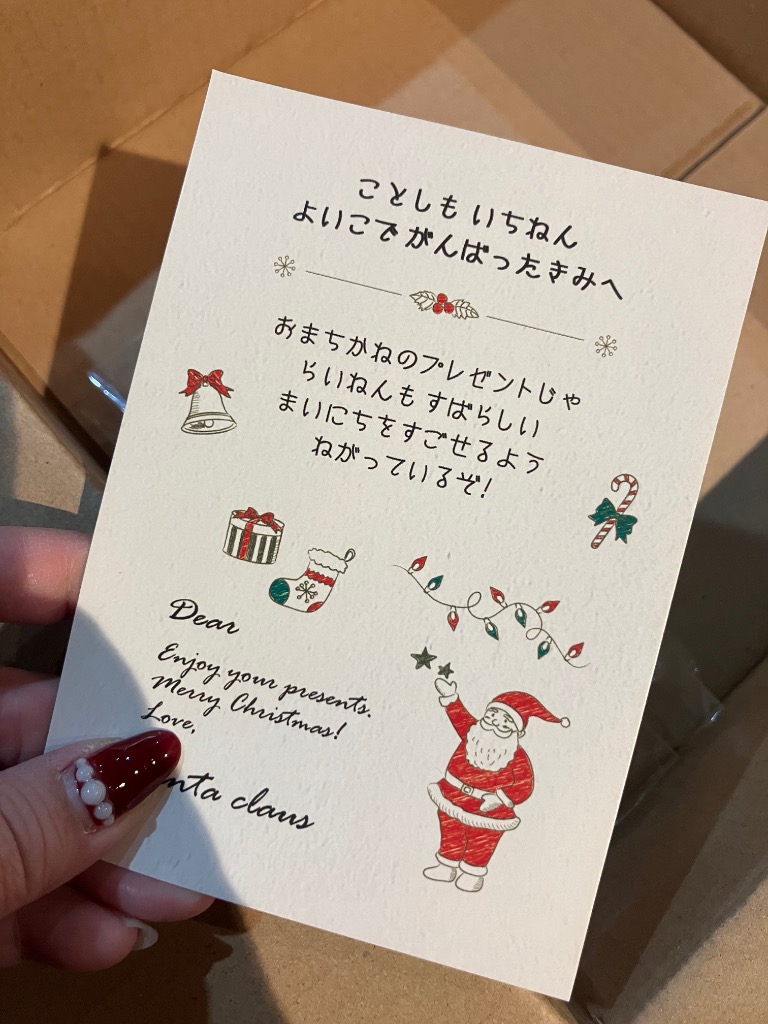 ことしも いちねん
よいこで がんばったきみへ
おまちかねのプレゼントじゃ
らいねんも すばらしい
まいにちをすごせるよう
ねがっているぞ!
Dear
Enjoy your presents.
Merry Christmas!
Love,
claus